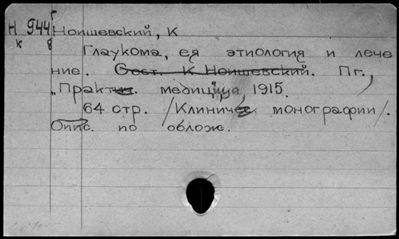 Н 944 Г
к 8 Ноишевский, К
Глаукома, ея этиология и лече
ние. Сост. К. Ноишевский. Пг.,
„Практич. медицина, 1915.
64 стр. /Клинич. монографии/.
Опис. по облож.